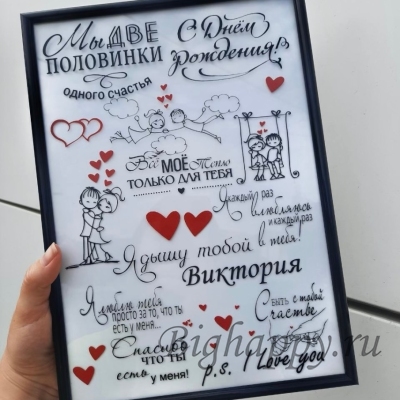 Мы ДВЕ
ПОЛОВИНКИ
одного счастья
С Днём
Рождения!
Всё МОЁ Тепло
ТОЛЬКО ДЛЯ ТЕБЯ
Я каждый раз
влюбляюсь
и каждый раз
в тебя!
Я дышу тобой
Виктория
Я люблю тебя
просто за то, что ты
есть у меня...
Быть с тобой
Счастье
Спасибо
что ты
есть у меня!
p.s. I Love you
Bighappy.ru